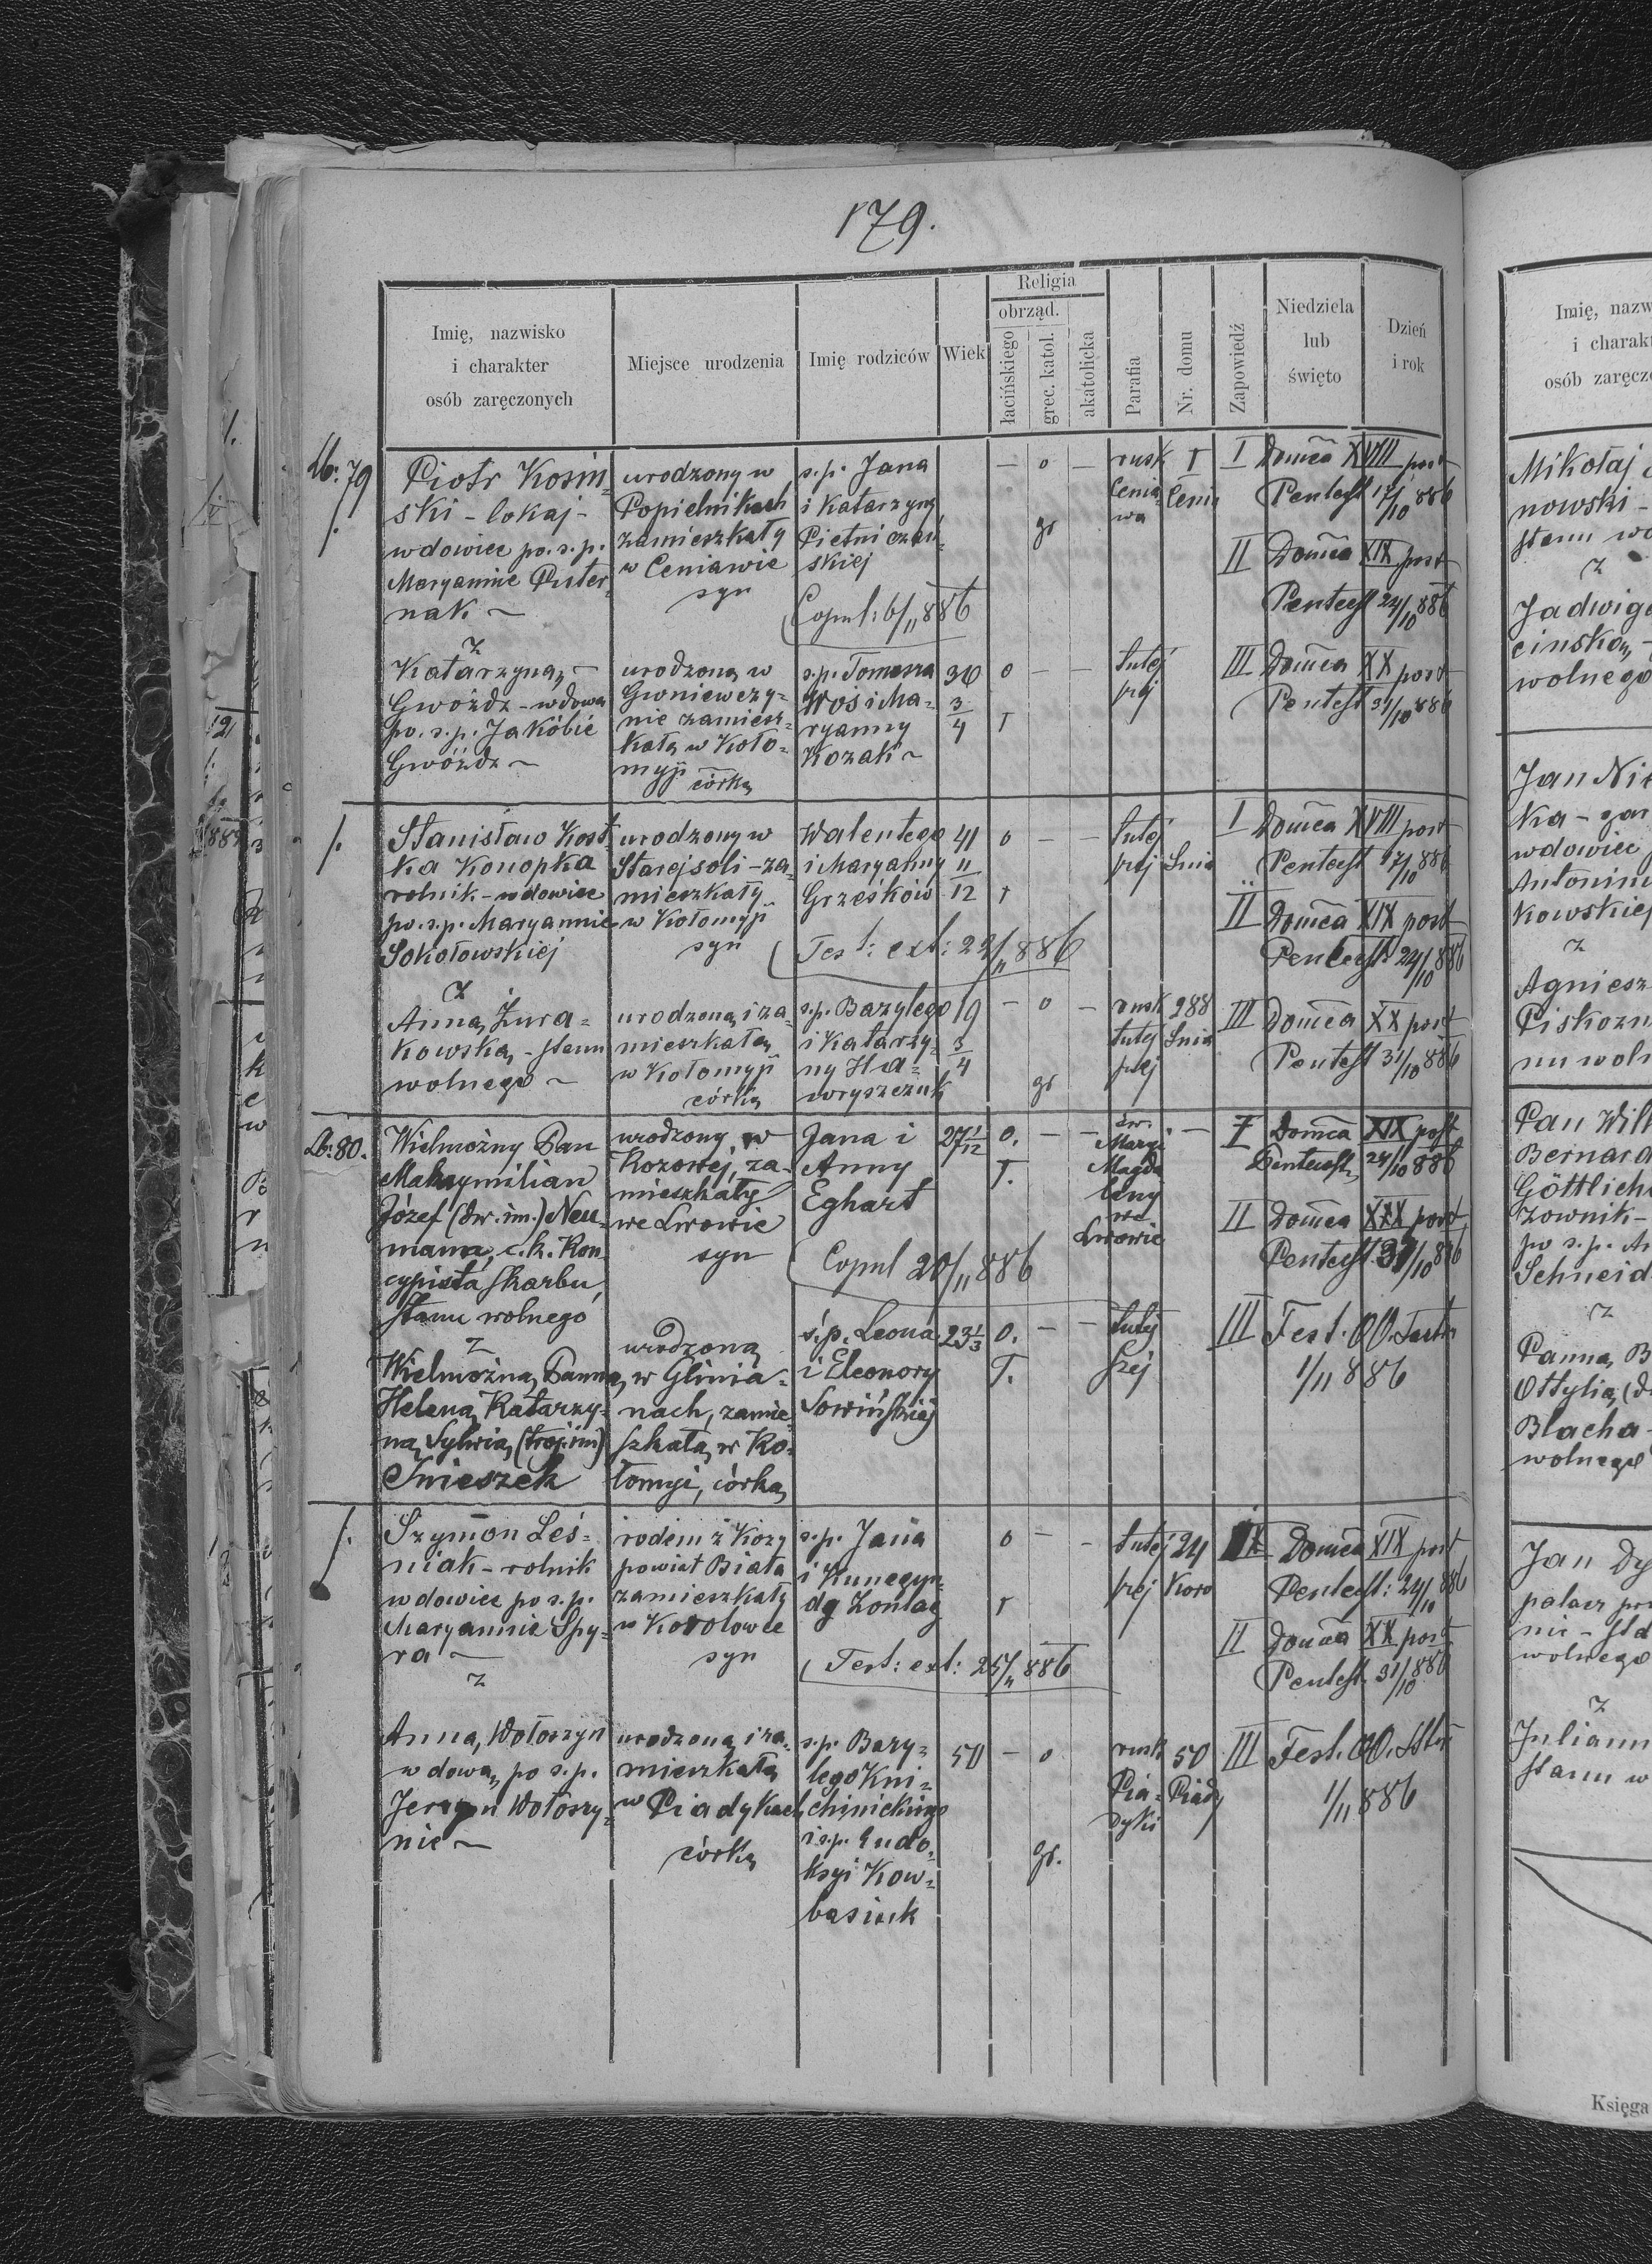 179.
Religia
obrząd.
Imię, nazwisko
i charakter
osób zaręczonych
Miejsce urodzenia
Imię rodziców
Wiek
łacińskiego
grec. katol.
akatolicka
Parafia
Nr. domu
Zapowiedź
Niedziela
lub
święto
Dzień
i rok
Lb: 79
Piotr Kosiń-
ski - lokaj -
wdowiec po. s.p.
Maryannie Puter-
nak ~
urodzony w
Popielnikach
zamieszkały
w Ceniawie
syn
s.p. Jana
i Katarzyny
Pietniczań-
skiej
Copul: 6/11 886
— o —
gr
rusk
Cenia-
wa
1
Cenia
I Domca XVIII post
Pentecst 17/10 886
II Domca XIX post
Pentecst 24/10 886
z
Katarzyną ~
Gwóźdź - wdową
po. s.p. Jakóbie
Gwóźdź ~
urodzoną w
Gwniewczy-
nie zamiesz-
kałą w Koło-
myji
córką
s.p. Tomasza
Woś i Ma-
ryanny
Kozak ~
36
3/4
o — —
r
tutej
szej
III Domca XX post
Pentest 31/10 886
/.
Stanisław Kost-
ka Konopka
rolnik - wdowiec
po. s.p. Maryannie
Sokołowskiej
urodzony w
Starejsoli - za-
mieszkały
w Kołomyji
syn
Walentego
i Maryanny
Grześków
41
11/12
o — —
r
Test: ext: 22/11 886
tutej
szej
Snia
I Domca XVIII post
Pentecst 17/10 886
II Domca XIX post
Pentecst 24/10 886
z
Anną Żura-
kowską - stanu
wolnego ~
urodzoną i za-
mieszkałą
w Kołomyji
córką
s.p. Bazylego
i Katarzy-
ny Ha-
wryszczuk
19
3/4
— o —
gr
rusk
tutej
szej
288
Snia
III Domca XX post
Pentest 31/10 886
Lb: 80.
Wielmożny Pan
Maksymilian
Józef (dw. im.) Neu-
mann, c. k. Kon-
cypista skarbu,
stanu wolnego
urodzony w
Kozowej, za-
mieszkały
we Lwowie
syn
Jana i
Anny
Eghart
27 1/12
o. — —
r.
Copul 20/11 886
św.
Maryi
Magda
leny
we
Lwowie
—
I Domca XIX post
Pentecost. 24/10 886
II Domca XX post
Pentecst. 31/10 886
z
Wielmożną Panną
Heleną Katarzy-
ną Sylwią (troj. im)
Śnieszek
urodzoną
w Glinia-
nach, zamie-
szkałą w Ko-
łomyi, córką
ś.p. Leona
i Eleonory
Sowińskiej
23 1/3
o. — —
r.
tutej
szej
III Fest. OO. Sctor
1/11 886
/.
Szymon Leś-
niak - rolnik
wdowiec po s.p.
Maryannie Spy-
ra ~
rodem z Kozy
powiat Biała
zamieszkały
w Korolowce
syn
s.p. Jana
i Kunegun-
dy Zontag
o — -
r
Test: ext: 25/11 886
tutej
szej
24
Koro
I Domca XIX post
Pentecst: 24/10 886
II Domca XX post
Pentest. 31/10 886
z
Anną Wołoszyn
wdową po s.p.
Jerzym Wołoszy-
nie ~
urodzoną i za-
mieszkałą
w Piadykach
córką
s.p. Bazy-
lego Kni-
hinickiego
i s.p. Eudo-
ksyi Kow-
basiuk
50
— o
gr.
rusk
Pia-
dyki
50
Piady
III Fest. OO. Sctor
1/11 886
Imię, nazw
i charakt
osób zaręczo
Mikołaj
nowski -
stanu wo
z
Jadwigą
cinską -
wolnego
Jan Nie
ka - gar
wdowiec
Antonin
kowskiej
z
Agniesz
Piskozu
nu woln
Pan Wilh
Bernard
Göttlich
po s.p. An
Schneid
z
Panną B
Ottylią (d
Blacha -
wolnego
Jan Dy
palacz
nie - sta
wolnego
z
Juliann
stanu w
Księga